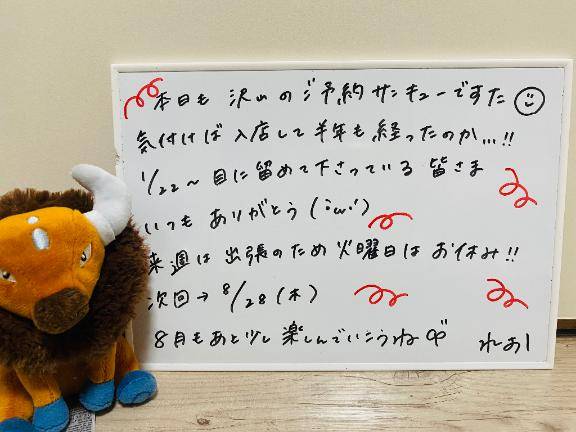 本日も 沢山のご予約サンキューですた
気付けば 入店して半年も経ったのか...!!
1/22〜 目に留めて下さっている 皆さま
いつも ありがとう (´ω`)
来週は 出張のため 火曜日は お休み!!
次回→ 8/28 (木)
8月もあと少し 楽しんでいこうね
れあ